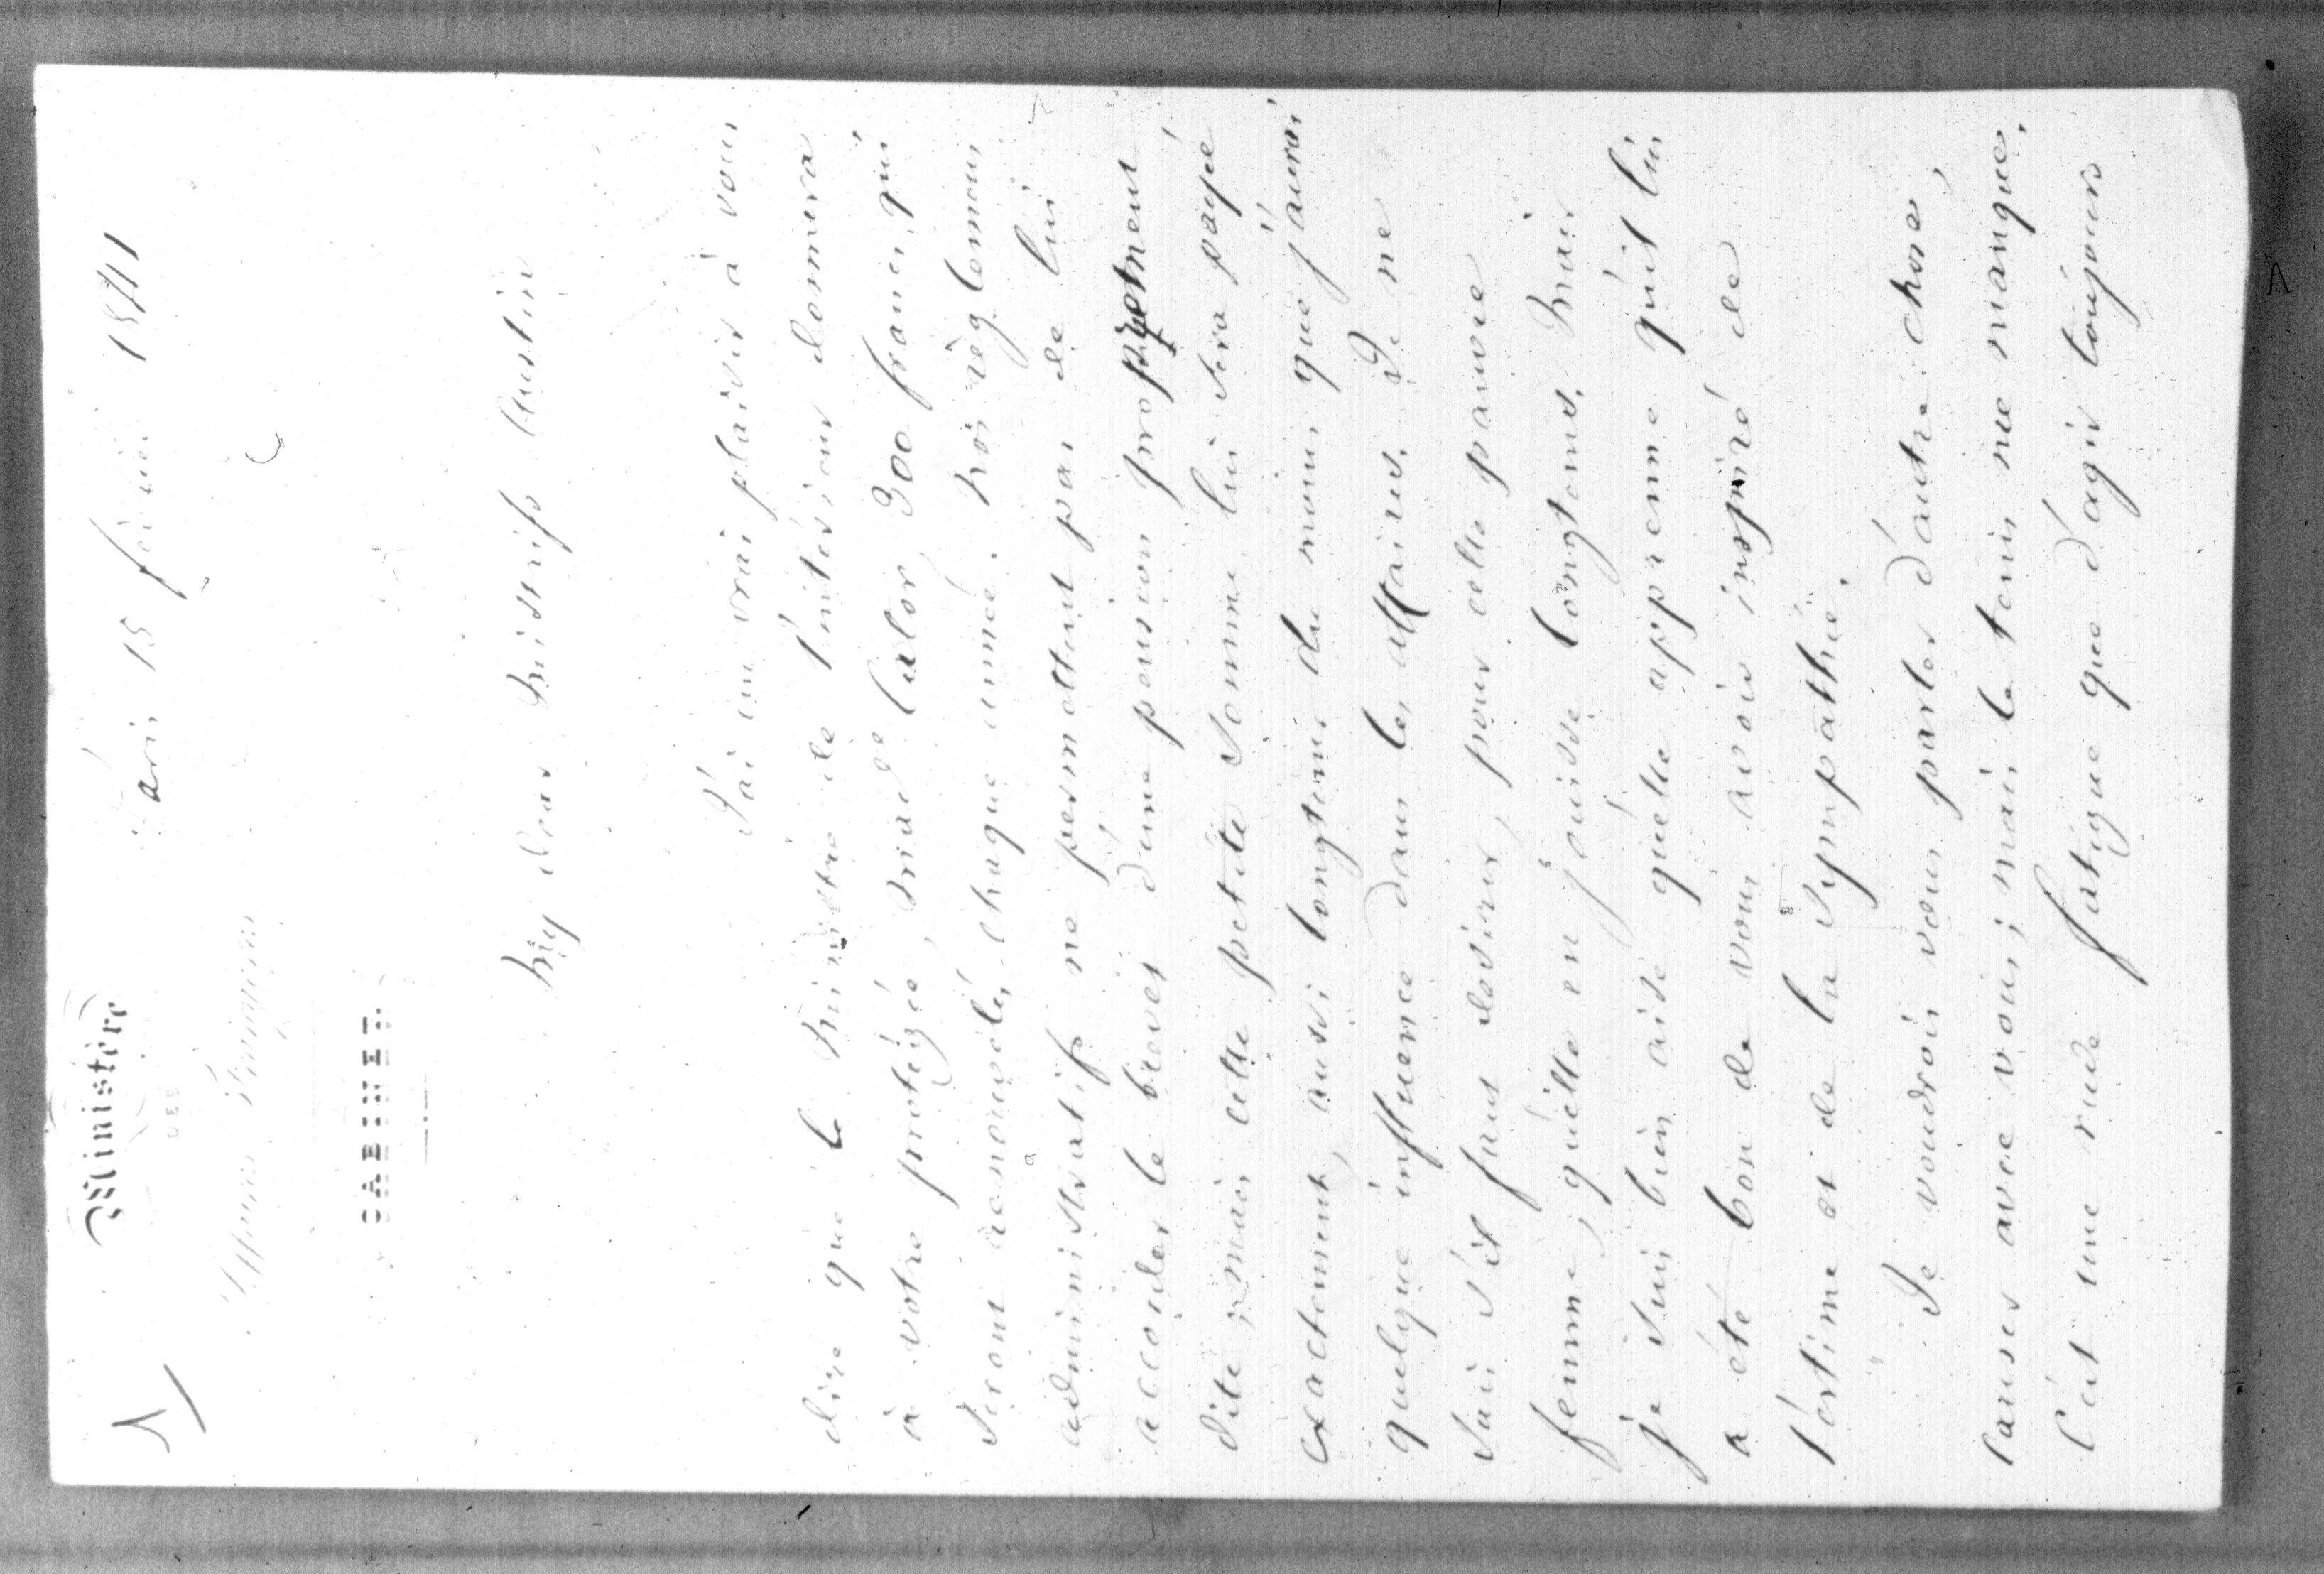 1/
Ministère
DES
Affaires Etrangères
CABINET.
Paris 15 février 1841
My dear Mistriss Austin
J'ai un vrai plaisir à vous
dire que le Ministre de l'Intérieur donnera
à votre protégée, Made Calor, 300 francs qui
seront renouvelés chaque année. Nos réglemens
administratifs ne permettent pas de lui
accorder le brevet d'une pension proprement
dite; mais cette petite somme lui sera payée
exactement, aussi longtems du moins que j'aurai
quelque influence dans les affaires. Je ne
sais s'il faut desirer, pour cette pauvre
femme, qu'elle en jouisse longtems. Mais
je suis bien aise qu'elle apprenne qu'il lui
a été bon de vous avoir inspiré de
l'estime et de la sympathie.
Je voudrois vous parler d'autre chose,
causer avec vous; mais le tems me manque.
C'est une rude fatigue que d'agir toujours